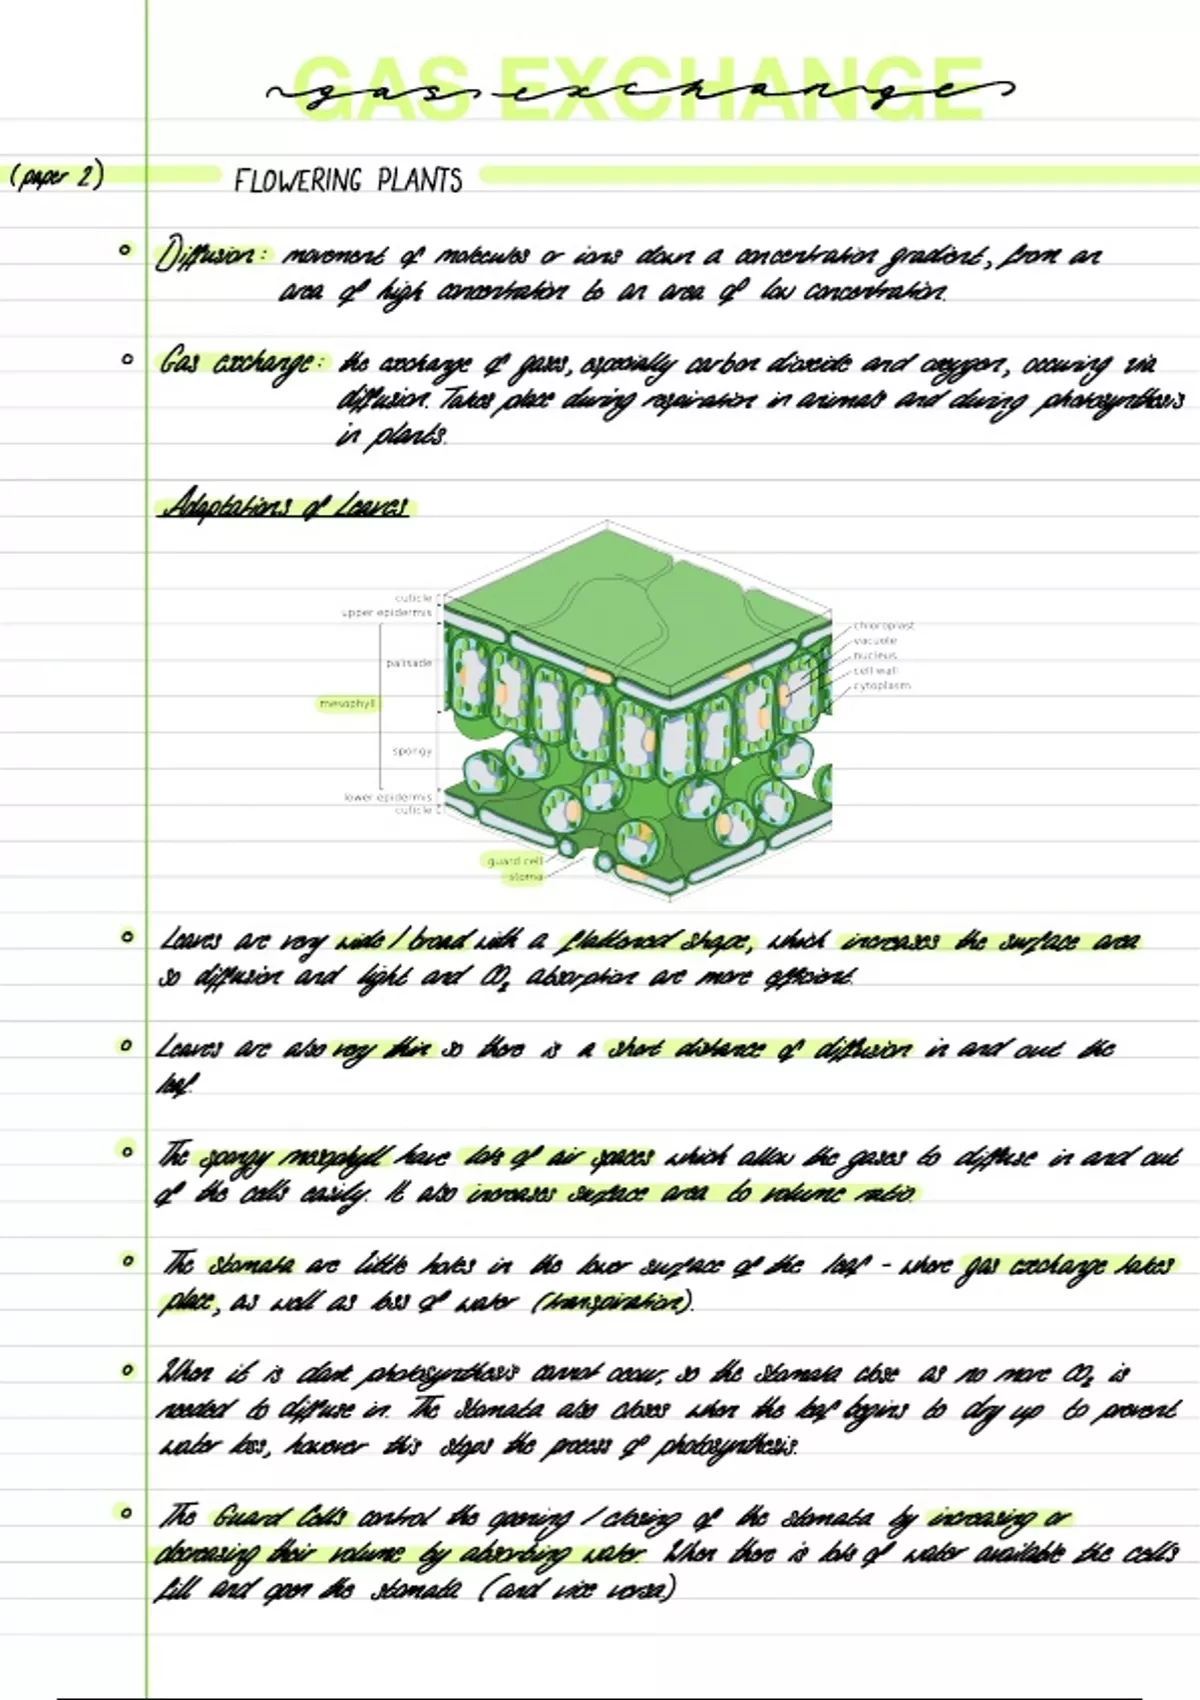 GAS EXCHANGE
gas exchange
(paper 2) FLOWERING PLANTS
Diffusion: movement of molecules or ions down a concentration gradient, from an
area of high concentration to an area of low concentration.
Gas exchange: the exchange of gases, especially carbon dioxide and oxygen, occuring via
diffusion. Takes place during respiration in animals and during photosynthesis
in plants.
Adaptations of Leaves
cuticle
upper epidermis
palisade
mesophyll
spongy
lower epidermis
cuticle
guard cell
stoma
chloroplast
vacuole
nucleus
cell wall
cytoplasm
Leaves are very wide/broad with a flattened shape, which increases the surface area
so diffusion and light and CO₂ absorption are more efficient.
Leaves are also very thin so there is a short distance of diffusion in and out the
leaf.
The spongy mesophyll have lots of air spaces which allow the gases to diffuse in and out
of the cells easily. It also increases surface area to volume ratio.
The stomata are little holes in the lower surface of the leaf - where gas exchange takes
place, as well as loss of water (transpiration).
When it is dark photosynthesis cannot occur, so the stomata close as no more CO₂ is
needed to diffuse in. The stomata also closes when the leaf begins to dry up to prevent
water loss, however this stops the process of photosynthesis.
The Guard Cells control the opening / closing of the stomata by increasing or
decreasing their volume by absorbing water. When there is lots of water available the cells
fill and open the stomata (and vice versa)